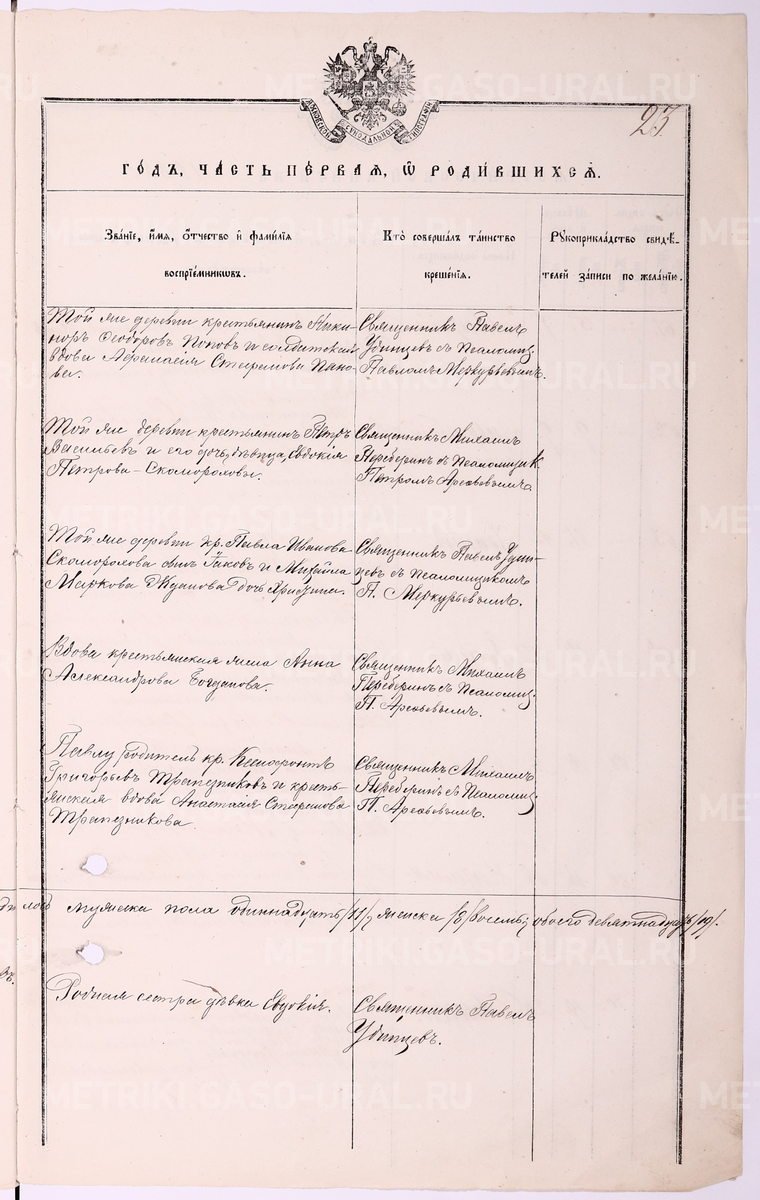 23.
МОСКОВСКОЙ СУНОДАЛЬНОЙ ТИПОГРАФИИ
ГОДЪ, ЧАСТЬ ПЕРВАЯ, Ѿ РОДИВШИХСЯ.
Званіе, имя, отчество и фамилія
воспріемниковъ.
Кто совершалъ таинство
крещенія.
Рукоприкладство свидѣ-
телей записи по желанію.
Той же деревни крестьянинъ Ники-
норъ Ѳеодоровъ Поповъ и солдатская
вдова Аѳанасія Стефанова Попо-
ва.
Священникъ Павелъ
Удинцевъ съ псаломщ.
Павломъ Меркурьевымъ.
Той же деревни крестьянинъ Петръ
Васильевъ и его дочь, дѣвица, Евдокія
Петрова Скоморохова.
Священникъ Михаилъ
Переберинъ съ псаломщик.
Петромъ Арефьевымъ.
Той же деревни кр. Павла Иванова
Скоморохова сынъ Іаковъ и Михаила
Маркова Жданова дочь
Священникъ Павелъ Удин-
цевъ съ псаломщикомъ
П. Меркурьевымъ.
Вдова крестьянская жена Анна
Александрова Богданова.
Священникъ Михаилъ
Переберинъ съ псаломщ.
П. Арефьевымъ.
Павлу родитель кр. Ксенофонтъ
Григорьевъ Трапезниковъ и кресть-
янская вдова Анастасія Стефанова
Трапезникова.
Священникъ Михаилъ
Переберинъ съ псаломщ.
П. Арефьевымъ.
мужеска пола одиннадцать /11/, женска /8/ восемь; обоего девятнадцать /19/.
Родная сестра дѣвка Евдокія.
Священникъ Павелъ
Удинцевъ.
METRIKI.GASO-URAL.RU